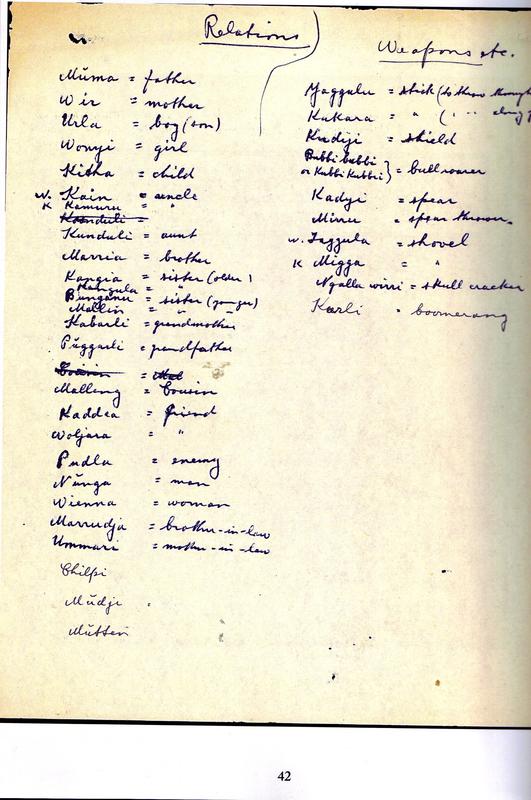 Relations
Mŭma = father
Wir = mother
Urla = boy (son)
Wonyi = girl
Kitha = child
W. Kain = uncle
K Kamuru = "
Kunduli = aunt
Marria = brother
Kangia = sister (older)
Kangula = "
Bunganu = sister (younger)
Mallin " "
Kabarli = grandmother
Pŭggarli = grandfather
Cousin =
Malleng = Cousin
Kaddea = friend
Woljara = "
Pudla = enemy
Nŭnga = man
Wienna = woman
Marrudja = brother-in-law
Ummari = mother-in-law
Chilpi
Mŭdji
Mŭtteri
Weapons etc.
Yaggulu = stick (to throw
Kakara = " (
Kudiji = shield
Bubbi bubbi
or Kubbi Kubbi } = bull roarer
Kadyi = spear
Mirru = spear thrower
W. Jaggula = shovel
K Migga = "
Ngalla wirri = skull cracker
Karli = boomerang
42